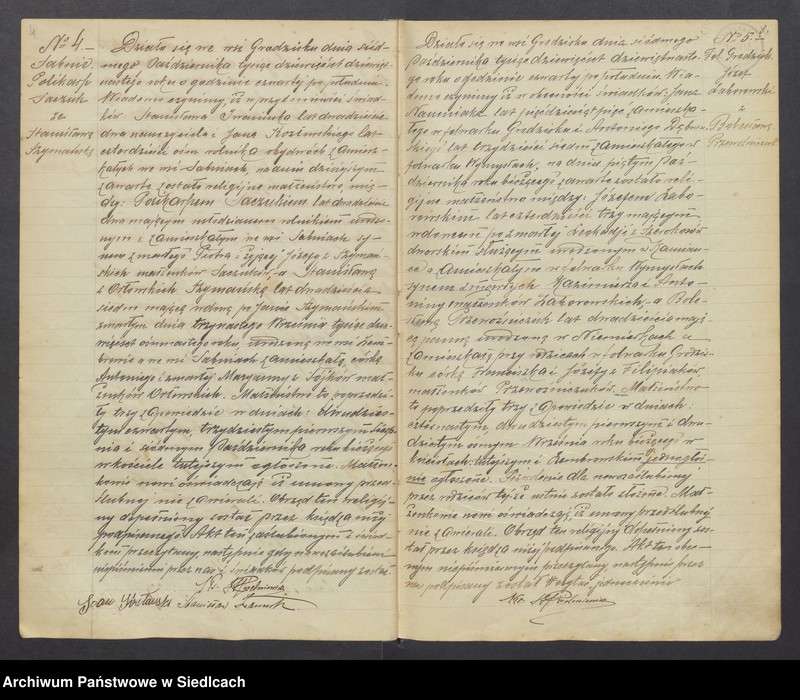 4
No 4. —
Sabnie.
Polikarp
Saczuk
ze
Stanisławą
Szymańską
Działo się we wsi Grodzisku dnia siód-
mego Października tysiąc dziewięćset dziewięt-
nastego roku o godzinie czwartej po południu.
Wiadomo czynimy, iż w przytomności świad-
ków Stanisława lat dwadzieścia
dwa nauczyciela i Jana lat
czterdzieści ośm rolnika obydwóch zamiesz-
kałych we wsi Sabniach, na dniu dzisiejszym
zawarte zostało religijne małżeństwo, mię-
dzy: Polikarpem Saczukiem lat dwadzieścia
dwa mającym młodzianem rolnikiem urodzo-
nym i zamieszkałym we wsi Sabniach sy-
nem zmarłego Piotra i żyjącej Józefy z Szymań-
skich małżonków Saczuków, — a Stanisławą
z Orłowskich Szymańską lat dwadzieścia
siedm mającą wdową po Janie Szymańskim
zmarłym dnia trzynastego Września tysiąc dzie-
więćset ośmnastego roku, urodzoną we wsi
a we wsi Sabniach zamieszkałą, córką
Antoniego i zmarłej Maryanny z Sójków mał-
żonków Orłowskich. Małżeństwo to poprzedzi-
ły trzy zapowiedzie w dniach: dwudzies-
tym czwartym, trzydziestym pierwszym Sierp-
nia i siódmym Października roku bieżącego
w kościele tutejszym ogłoszone. Małżon-
kowie nowi oświadczają iż umowy przed-
ślubnej nie zawierali. Obrzęd ten religij-
ny dopełniony został przez księdza niżej
podpisanego. Akt ten zaślubionym i świad-
kom przeczytany następnie gdy oboje zaślubieni
niepiśmienni przez nas i świadków podpisany został.
Stanisław
No 5.
Fol. Grodzisk
Józef
Zaborowski
z
Bolesławą
Działo się we wsi Grodzisku dnia siódmego
Października tysiąc dziewięćset dziewiętnaste-
go roku o godzinie czwartej po południu. Wia-
domo czynimy, iż w obecności świadków: Jana
Kamińskiego lat pięćdziesiąt pięć, zamieszka-
łego w folwarku Grodzisku i Antoniego Dębow-
skiego lat trzydzieści siedm, zamieszkałego w
folwarku Wymysłach, na dniu piątym Paź-
dziernika roku bieżącego zawarte zostało reli-
gijne małżeństwo między: Józefem Zabo-
rowskim lat czterdzieści trzy mającym
wdowcem po zmarłej
dworskim służącym urodzonym w
a zamieszkałym w folwarku Wymysłach
synem Kazimierza i Anto-
niny małżonków Zaborowskich, — a Bole-
sławą lat dwadzieścia mają-
cą panną urodzoną w a
zamieszkałą przy rodzicach w folwarku Grodzi-
sku córką Franciszka i Józefy z Filipiaków
małżonków . Małżeństwo
to poprzedziły trzy zapowiedzie w dniach:
czternastym, dwudziestym pierwszym i dwu-
dziestym ósmym Września roku bieżącego w
kościołach: tutejszym i Zembrowskim jednogłoś-
nie ogłoszone. Pozwolenie dla nowozaślubionej
przez rodziców tejże ustnie zostało złożone. Mał-
żonkowie nowi oświadczają, iż umowy przedślubnej
nie zawierali. Obrzęd ten religijny dopełniony zos-
tał przez księdza niżej podpisanego. Akt ten obec-
nym niepiśmiennym przeczytany, następnie przez
nas podpisany został.
Archiwum Państwowe w Siedlcach